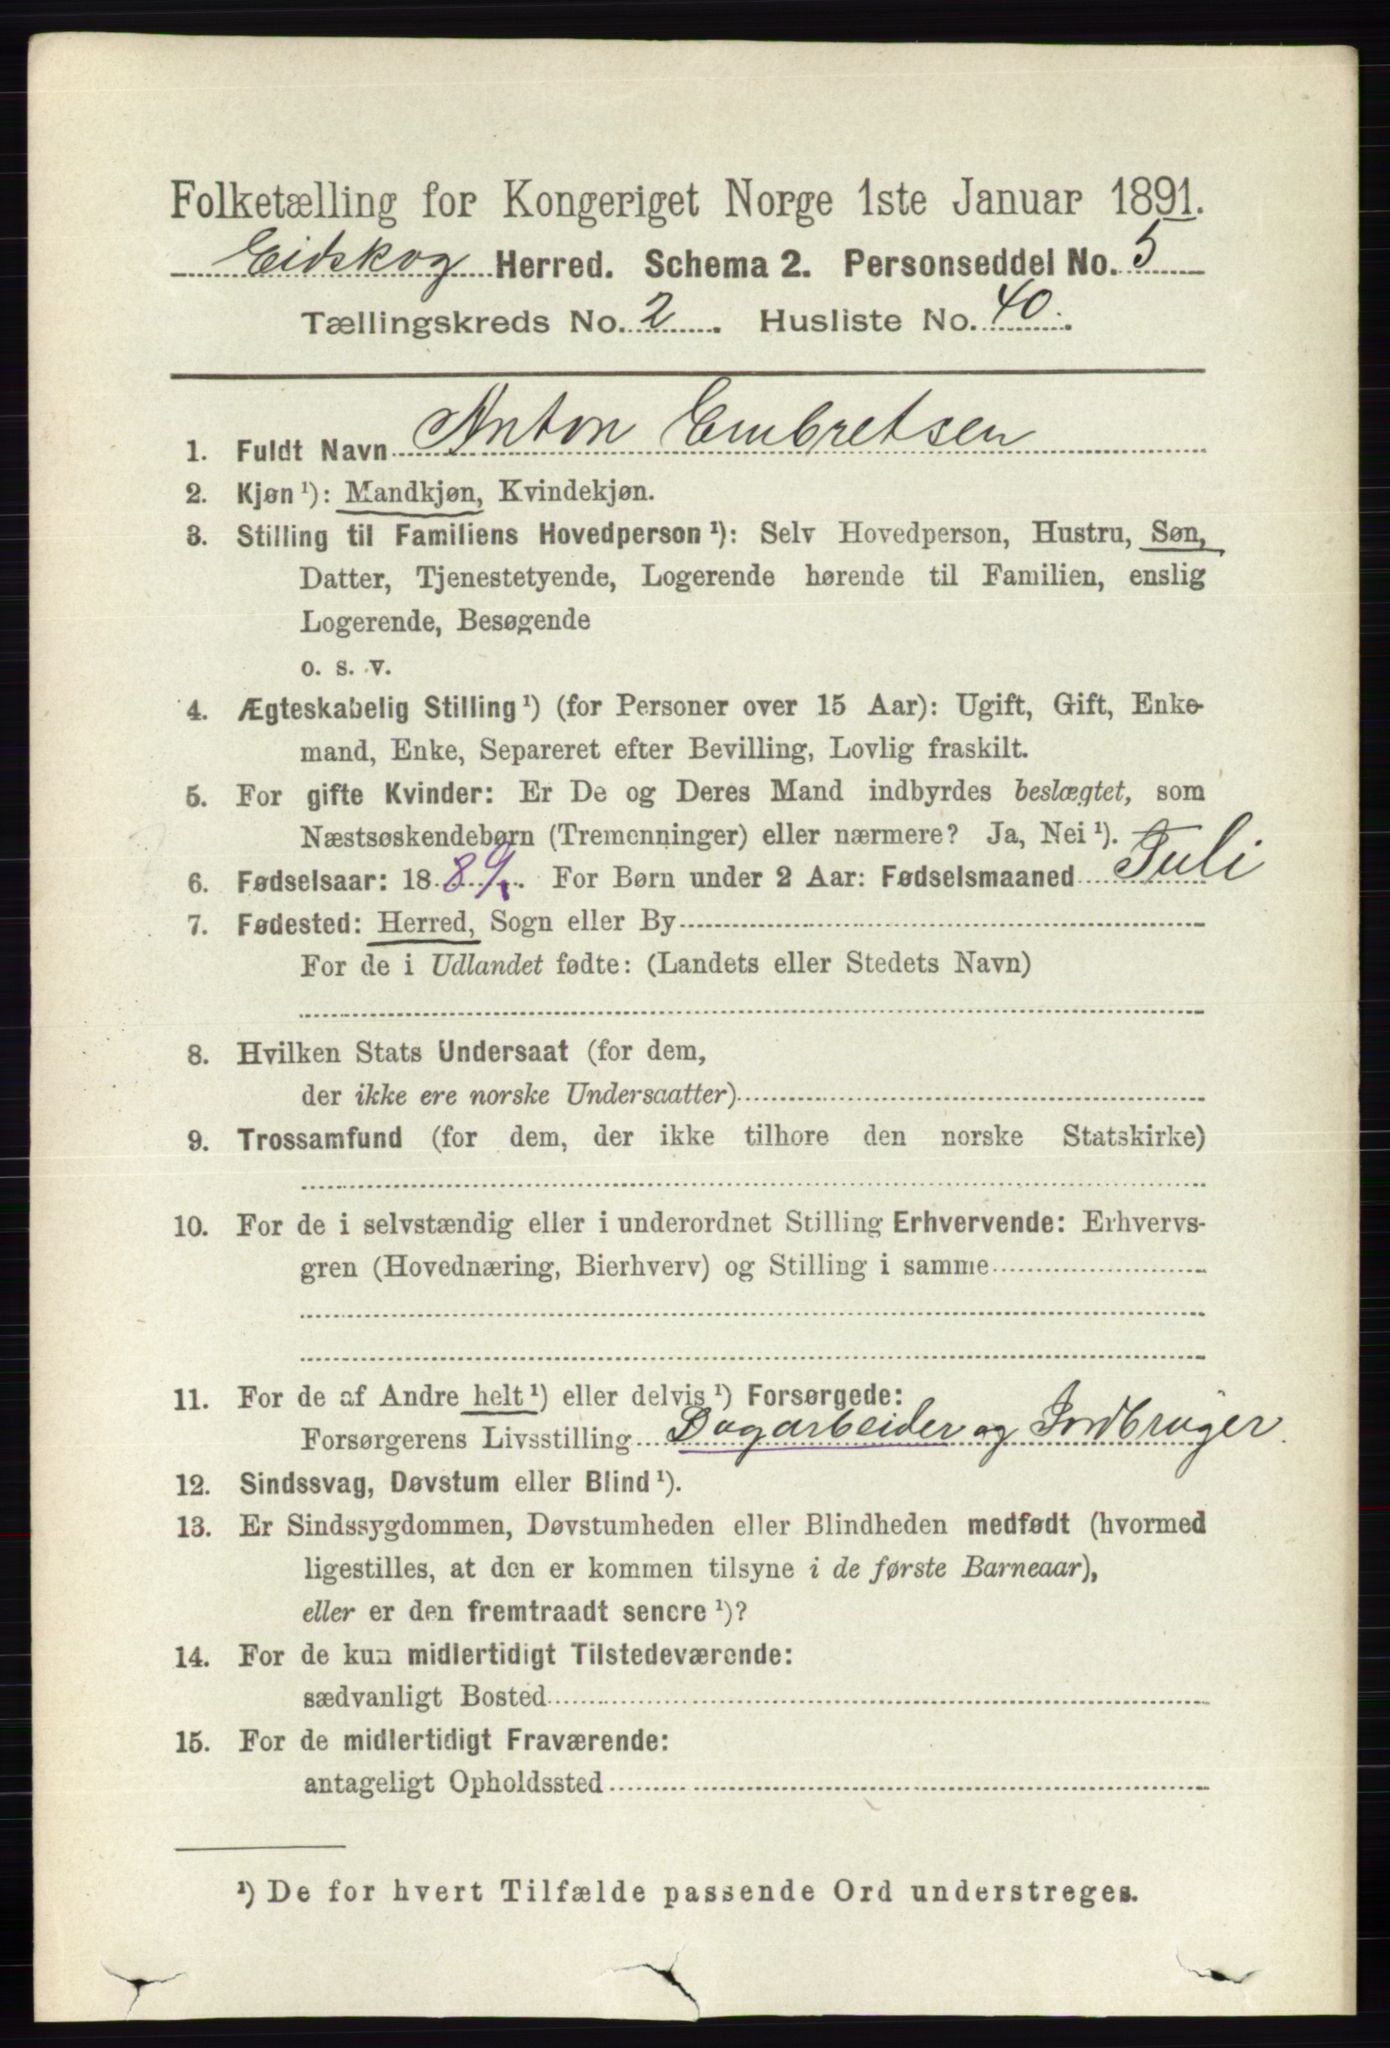 Folketælling for Kongeriget Norge 1ste Januar 1891.
Eidskog Herred. Schema 2. Personseddel No. 5
Tællingskreds No. 2. Husliste No. 40.
1. Fuldt Navn Anton Embretsen
2. Kjøn ¹): Mandkjøn, Kvindekjøn.
3. Stilling til Familiens Hovedperson ¹): Selv Hovedperson, Hustru, Søn,
Datter, Tjenestetyende, Logerende hørende til Familien, enslig
Logerende, Besøgende
o. s. v.
4. Ægteskabelig Stilling ¹) (for Personer over 15 Aar): Ugift, Gift, Enke-
mand, Enke, Separeret efter Bevilling, Lovlig fraskilt.
5. For gifte Kvinder: Er De og Deres Mand indbyrdes beslægtet, som
Næstsøskendebørn (Tremenninger) eller nærmere? Ja, Nei ¹).
6. Fødselsaar: 1889. For Børn under 2 Aar: Fødselsmaaned Juli
7. Fødested: Herred, Sogn eller By
For de i Udlandet fødte: (Landets eller Stedets Navn)
8. Hvilken Stats Undersaat (for dem,
der ikke ere norske Undersaatter)
9. Trossamfund (for dem, der ikke tilhøre den norske Statskirke)
10. For de i selvstændig eller i underordnet Stilling Erhvervende: Erhvervs-
gren (Hovednæring, Bierhverv) og Stilling i samme
11. For de af Andre helt ¹) eller delvis ¹) Forsørgede:
Forsørgerens Livsstilling Dagarbeider og Jordbruger.
12. Sindssvag, Døvstum eller Blind ¹).
13. Er Sindssygdommen, Døvstumheden eller Blindheden medfødt (hvormed
ligestilles, at den er kommen tilsyne i de første Barneaar),
eller er den fremtraadt senere ¹)?
14. For de kun midlertidigt Tilstedeværende:
sædvanligt Bosted
15. For de midlertidigt Fraværende:
antageligt Opholdssted
¹) De for hvert Tilfælde passende Ord understreges.